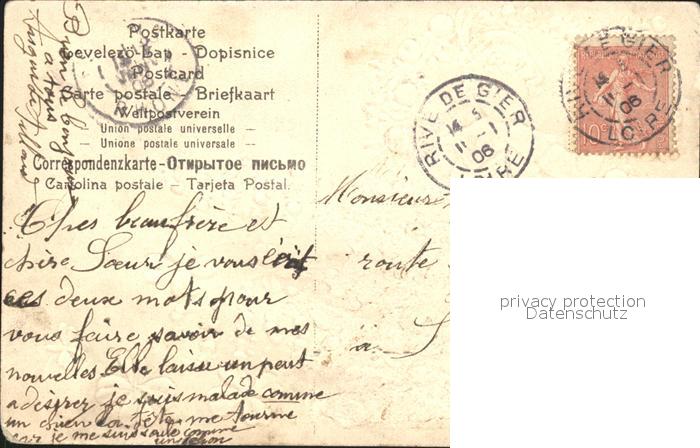 Postkarte
Levelezö-Lap - Dopisnice
Postcard
Carte postale - Briefkaart
Weltpostverein
Union postale universelle —
Unione postale universale —
Correspondenzkarte - Открытое письмо
Cartolina postale - Tarjeta Postal.
RIVE DE GIER
14 5
11 - 1
06
LOIRE
RIVE DE GIER
11
06
LOIRE
10
RHONE
Bien
a tous
Chers beaufrère et
chère Sœur je vous écrit
ces deux mots pour
vous faire savoir de mes
nouvelles Elle laisse un peut
a désirez je suis malade comme
un chien la tête me tourne
je me suis soule comme
un
Monsieur
route
a S
privacy protection
Datenschutz